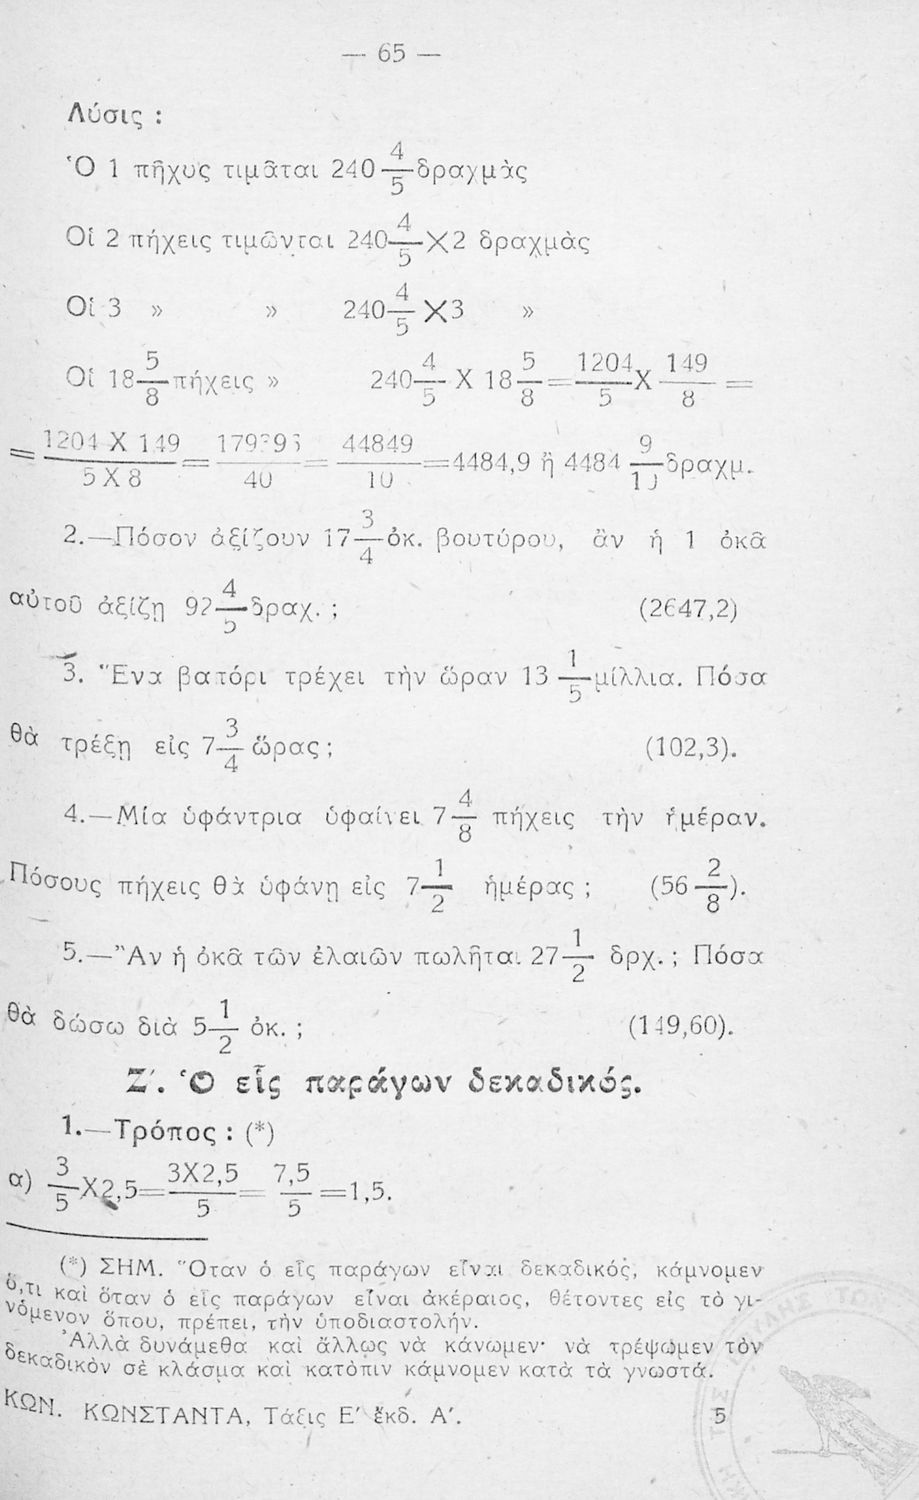 — 65 —
Λύσις :
Ὁ 1 πῆχυς τιμᾶται 240 4/5 δραχμὰς
Οἱ 2 πήχεις τιμῶνται 240 4/5 Χ2 δραχμὰς
Οἱ 3 » » 240 4/5 Χ3 »
Οἱ 18 5/8 πήχεις » 240 4/5 Χ 18 5/8 = 1204/5 Χ 149/8 =
= 1204 Χ 149 / 5 Χ 8 = 179396/40 = 44849/10 = 4484,9 ἢ 4484 9/10 δραχμ.
2.—Πόσον ἀξίζουν 17 3/4 ὀκ. βουτύρου, ἂν ἡ 1 ὀκᾶ
αὐτοῦ ἀξίζῃ 92 4/5 δραχ. ; (2647,2)
3. Ἕνα βαπόρι τρέχει τὴν ὥραν 13 1/5 μίλλια. Πόσα
θὰ τρέξῃ εἰς 7 3/4 ὥρας ; (102,3).
4.—Μία ὑφάντρια ὑφαίνει 7 4/8 πήχεις τὴν ἡμέραν.
Πόσους πήχεις θὰ ὑφάνῃ εἰς 7 1/2 ἡμέρας ; (56 2/8).
5.—Ἂν ἡ ὀκᾶ τῶν ἐλαιῶν πωλῆται 27 1/2 δρχ. ; Πόσα
θὰ δώσω διὰ 5 1/2 ὀκ. ; (149,60).
Ζ΄. Ὁ εἷς παράγων δεκαδικός.
1.—Τρόπος : (*)
α) 3/5 Χ2,5= 3Χ2,5/5 = 7,5/5 =1,5.
(*) ΣΗΜ. Ὅταν ὁ εἷς παράγων εἶναι δεκαδικός, κάμνομεν
ὅ,τι καὶ ὅταν ὁ εἷς παράγων εἶναι ἀκέραιος, θέτοντες εἰς τὸ γι-
νόμενον ὅπου, πρέπει, τὴν ὑποδιαστολήν.
Ἀλλὰ δυνάμεθα καὶ ἄλλως νὰ κάνωμεν· νὰ τρέψωμεν τὸν
δεκαδικὸν σὲ κλάσμα καὶ κατόπιν κάμνομεν κατὰ τὰ γνωστά.
ΚΩΝ. ΚΩΝΣΤΑΝΤΑ, Τάξις Ε΄ ἔκδ. Α΄. 5